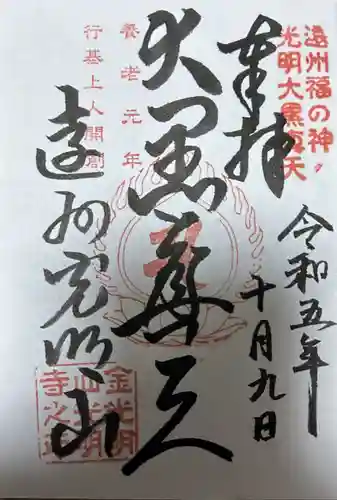 遠州福の神
光明大黒真天
奉拝
令和五年
十月九日
大黒尊天
養老元年
行基上人開創
遠州光明山
金光明
山光明
寺之印